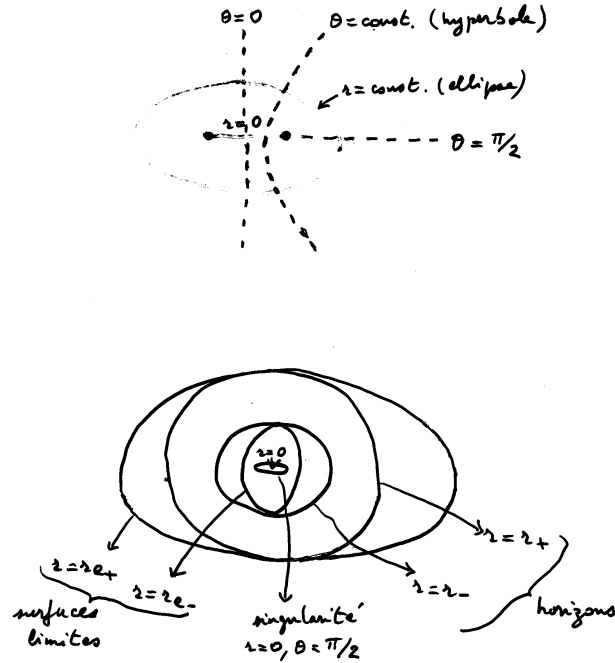 θ=0
θ=const. (hyperbole)
r=const. (ellipse)
r=0
θ = π/2
r=0
r=r+
r=re+
r=re-
r=r-
surfaces
limites
singularité
r=0, θ=π/2
horizons